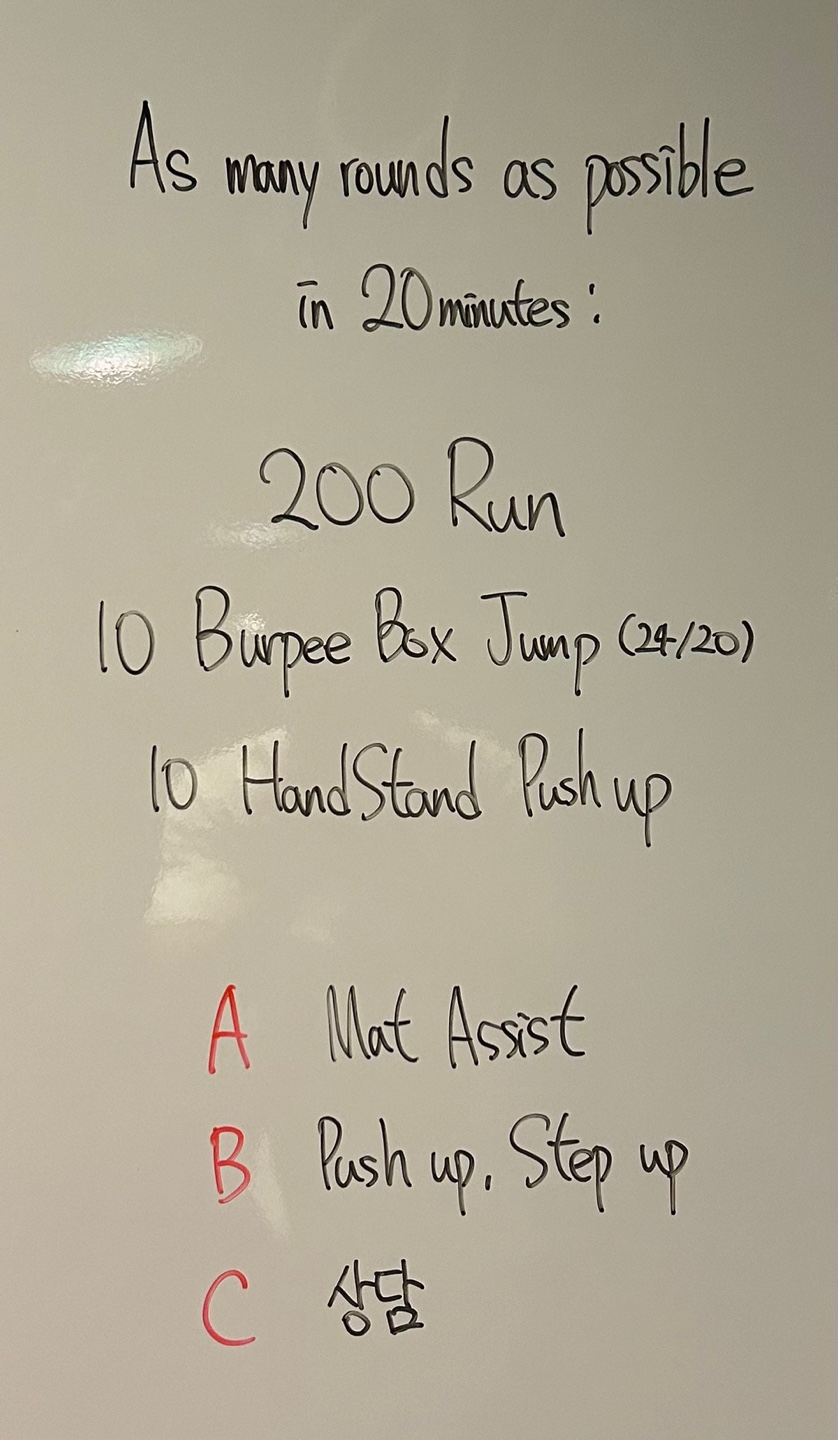 As many rounds as possible
in 20minutes :
200 Run
10 Burpee Box Jump (24/20)
10 HandStand Push up
A Mat Assist
B Push up, Step up
C 상담